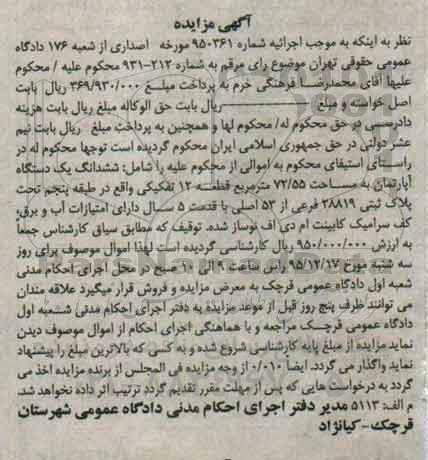 آگهی مزایده
نظر به اینکه به موجب اجرائیه شماره ۹۵۰۳۶۱ مورخه اصداری از شعبه ۱۷۶ دادگاه
عمومی حقوقی تهران موضوع رای مرقم به شماره ۲۱۲-۹۳۱ محکوم علیه / محکوم
علیها آقای محمدرضا فرهنگی خرم به پرداخت مبلغ ۳۶۹/۹۳۰/۰۰۰ ریال بابت
اصل خواسته و مبلغ ـــــــــ ریال بابت حق الوکاله مبلغ ریال بابت هزینه
دادرسی در حق محکوم له/ محکوم لها و همچنین به پرداخت مبلغ ریال بابت نیم
عشر دولتی در حق جمهوری اسلامی ایران محکوم گردیده است توجها محکوم له در
راستای استیفای محکوم به اموالی از محکوم علیه را شامل: ششدانگ یک دستگاه
آپارتمان به مساحت ۷۲/۵۵ مترمربع قطعه ۱۲ تفکیکی واقع در طبقه پنجم تحت
پلاک ثبتی ۲۸۸۱۹ فرعی از ۵۳ اصلی با قدمت ۵ سال دارای امتیازات آب و برق،
کف سرامیک کابینت ام دی اف نوساز شده. توقیف که مطابق سیاق کارشناس جمعا
به ارزش ۹۵۰/۰۰۰/۰۰۰ ریال کارشناسی گردیده است لهذا اموال موصوف برای روز
سه شنبه مورخ ۹۵/۱۲/۱۷ راس ساعت ۹ الی ۱۰ صبح در محل اجرای احکام مدنی
شعبه اول دادگاه عمومی قرچک به معرض مزایده و فروش قرار میگیرد علاقه مندان
می توانند ظرف پنج روز قبل از موعد مزایده به دفتر اجرای احکام مدنی شعبه اول
دادگاه عمومی قرچک مراجعه و با هماهنگی اجرای احکام از اموال موصوف دیدن
نماید مزایده از مبلغ پایه کارشناسی شروع شده و به کسی که بالاترین مبلغ را پیشنهاد
نماید واگذار می گردد. ایضاً ۰/۰۱۰ از وجه مزایده فی المجلس از برنده مزایده اخذ می
گردد به درخواست هایی که پس از مهلت مقرر تقدیم گردد ترتیب اثر داده نخواهد شد.
م الف: ۵۱۱۳ مدیر دفتر اجرای احکام مدنی دادگاه عمومی شهرستان
قرچک-کیانژاد